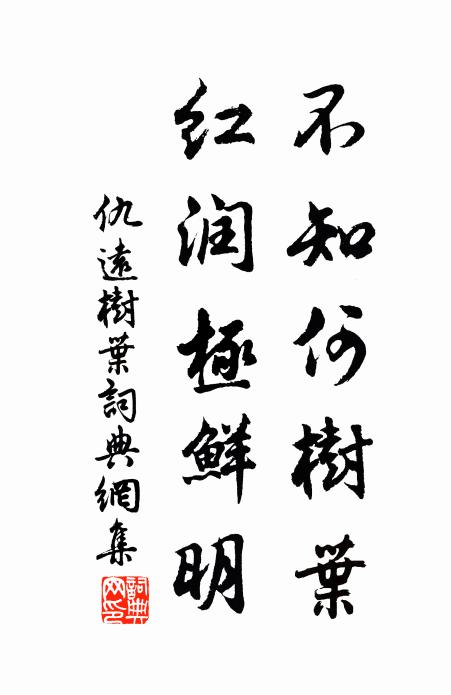 不知何樹葉
红润極鮮明
仇遠樹葉詞典網集
詞典網印